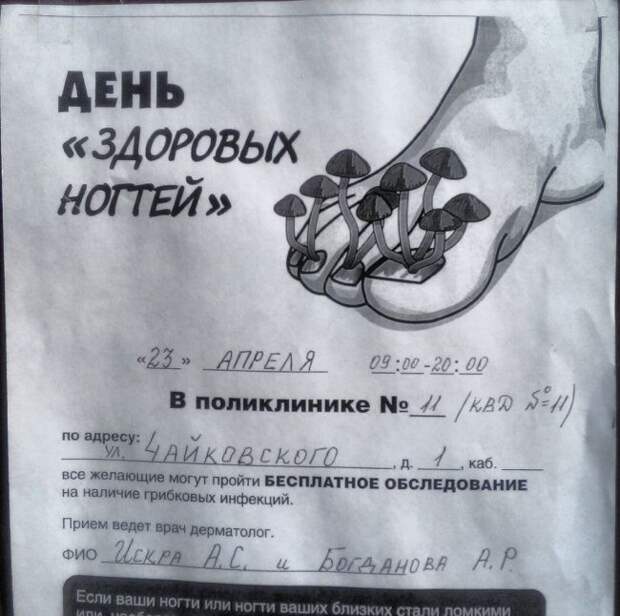 ДЕНЬ
«ЗДОРОВЫХ
НОГТЕЙ»
«23» АПРЕЛЯ 09:00-20:00
В ПОЛИКЛИНИКЕ № 11 /КВД №11)
по адресу:
ул. ЧАЙКОВСКОГО, д. 1, каб.
все желающие могут пройти БЕСПЛАТНОЕ ОБСЛЕДОВАНИЕ
на наличие грибковых инфекций.
Прием ведет врач дерматолог.
ФИО Искра А.С. и БОГДАНОВА А.Р.
Если ваши ногти или ногти ваших близких стали ломкими
или